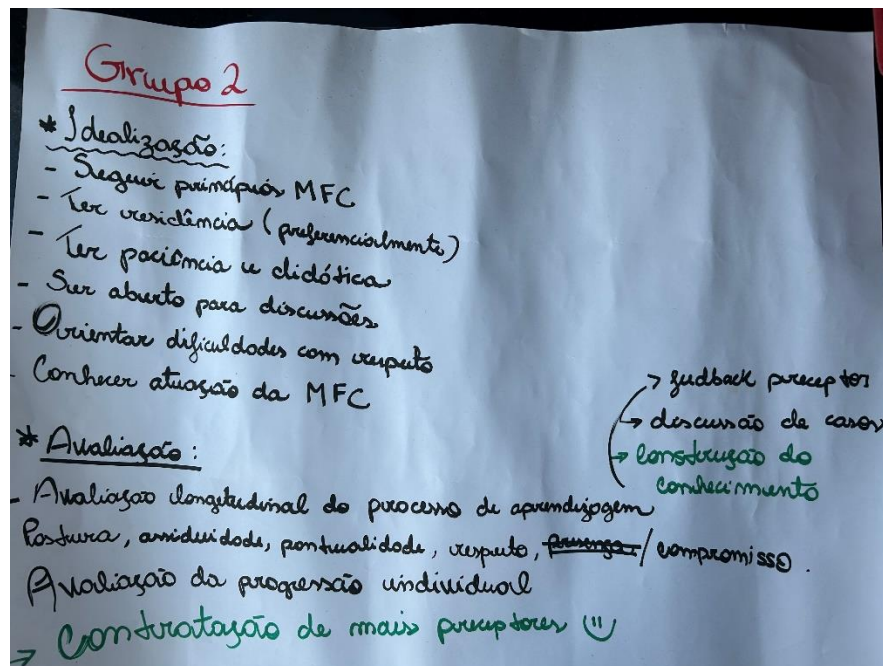 Grupo 2
* Idealização:
- Seguir princípios MFC
- Ter residência (preferencialmente)
- Ter paciência e didática
- Ser aberto para discussões
- Orientar dificuldades com respeito
- Conhecer atuação da MFC
→ feedback preceptor
→ discussão de casos
→ construção do
conhecimento
* Avaliação:
- Avaliação longitudinal do processo de aprendizagem
Postura, assiduidade, pontualidade, respeito, presença / compromisso.
Avaliação da progressão individual
→ Contratação de mais preceptores